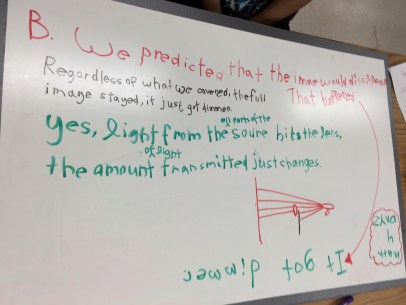 B. We predicted that the image would disappear
Regardless of what we covered, the full
image stayed, it just got dimmer.
That happened
all parts of the
yes, light from the soure hits the lens,
of light
the amount transmitted just changes.
It got dimmer